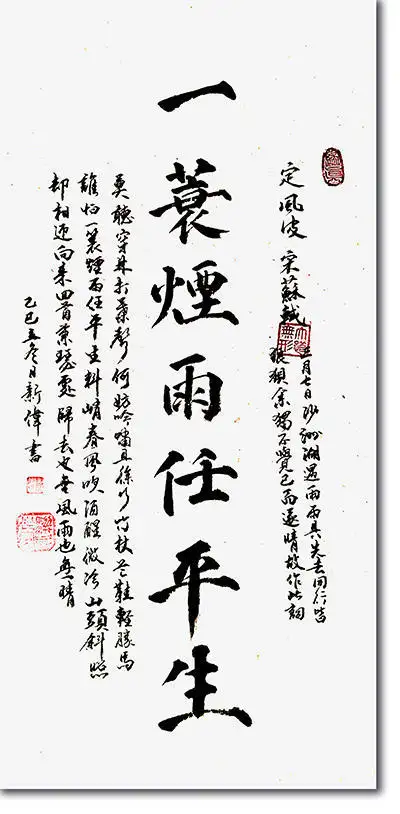 定風波 宋蘇軾
三月七日沙湖遇雨雨具先去同行皆
狼狽余獨不覺已而遂晴故作此詞
一蓑煙雨任平生
莫聽穿林打葉聲何妨吟嘯且徐行竹杖芒鞋輕勝馬
誰怕一蓑煙雨任平生料峭春風吹酒醒微冷山頭斜照
却相迎向来回首蕭瑟處歸去也無風雨也無晴
乙巳立冬日新偉書